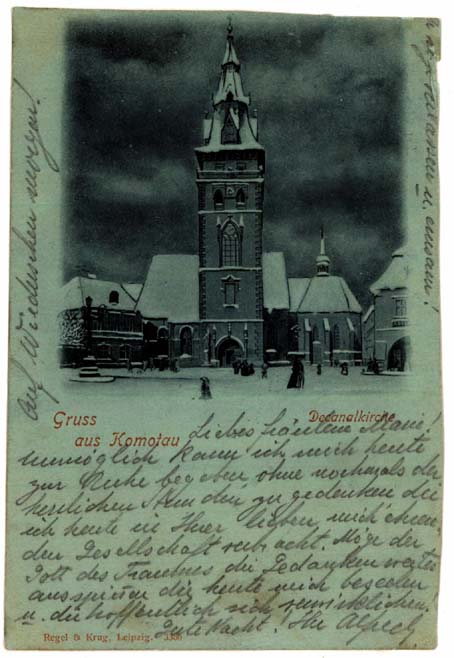 Auf Wiedersehen morgen!
Gruss
aus Komotau
Decanalkirche
Liebes Fräulein Marie!
unmöglich kann ich mich heute
zur Ruhe begeben, ohne nochmals der
herrlichen Stunden zu gedenken die
ich heute in Ihrer lieben, mich ehren-
den Gesellschaft verbracht. Möge der
Gott des Traumes die Gedanken weiter
ausspinnen die heute mich beseelen
u. die hoffentlich sich verwirklichen!
Gute Nacht! Ihr
u. einsam!
Regel & Krug, Leipzig.